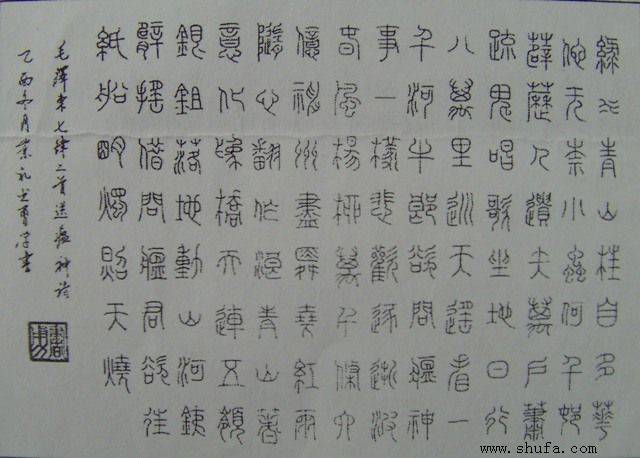 綠水青山枉自多華
佗无奈小蟲何千邨
薜荔人遺矢萬戶蕭
疏鬼唱歌坐地日行
八萬里巡天遙看一
千河牛郎欲問瘟神
事一樣悲歡逐逝波
春風楊柳萬千條六
億神州盡舜堯紅雨
隨心翻作浪青山著
意化為橋天連五嶺
銀鉏落地動山河銕
臂搖借問瘟君欲往
紙船明燭照天燒
毛澤東七律二首送瘟神詩
乙酉冬月書
www.shufa.com